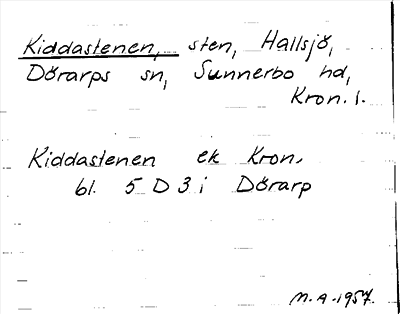 Kiddastenen, sten, Hallsjö,
Dörarps sn, Sunnerbo hd,
Kron. l.
Kiddastenen ek Kron.
bl. 5 D 3 i Dörarp
M.A. 1957.